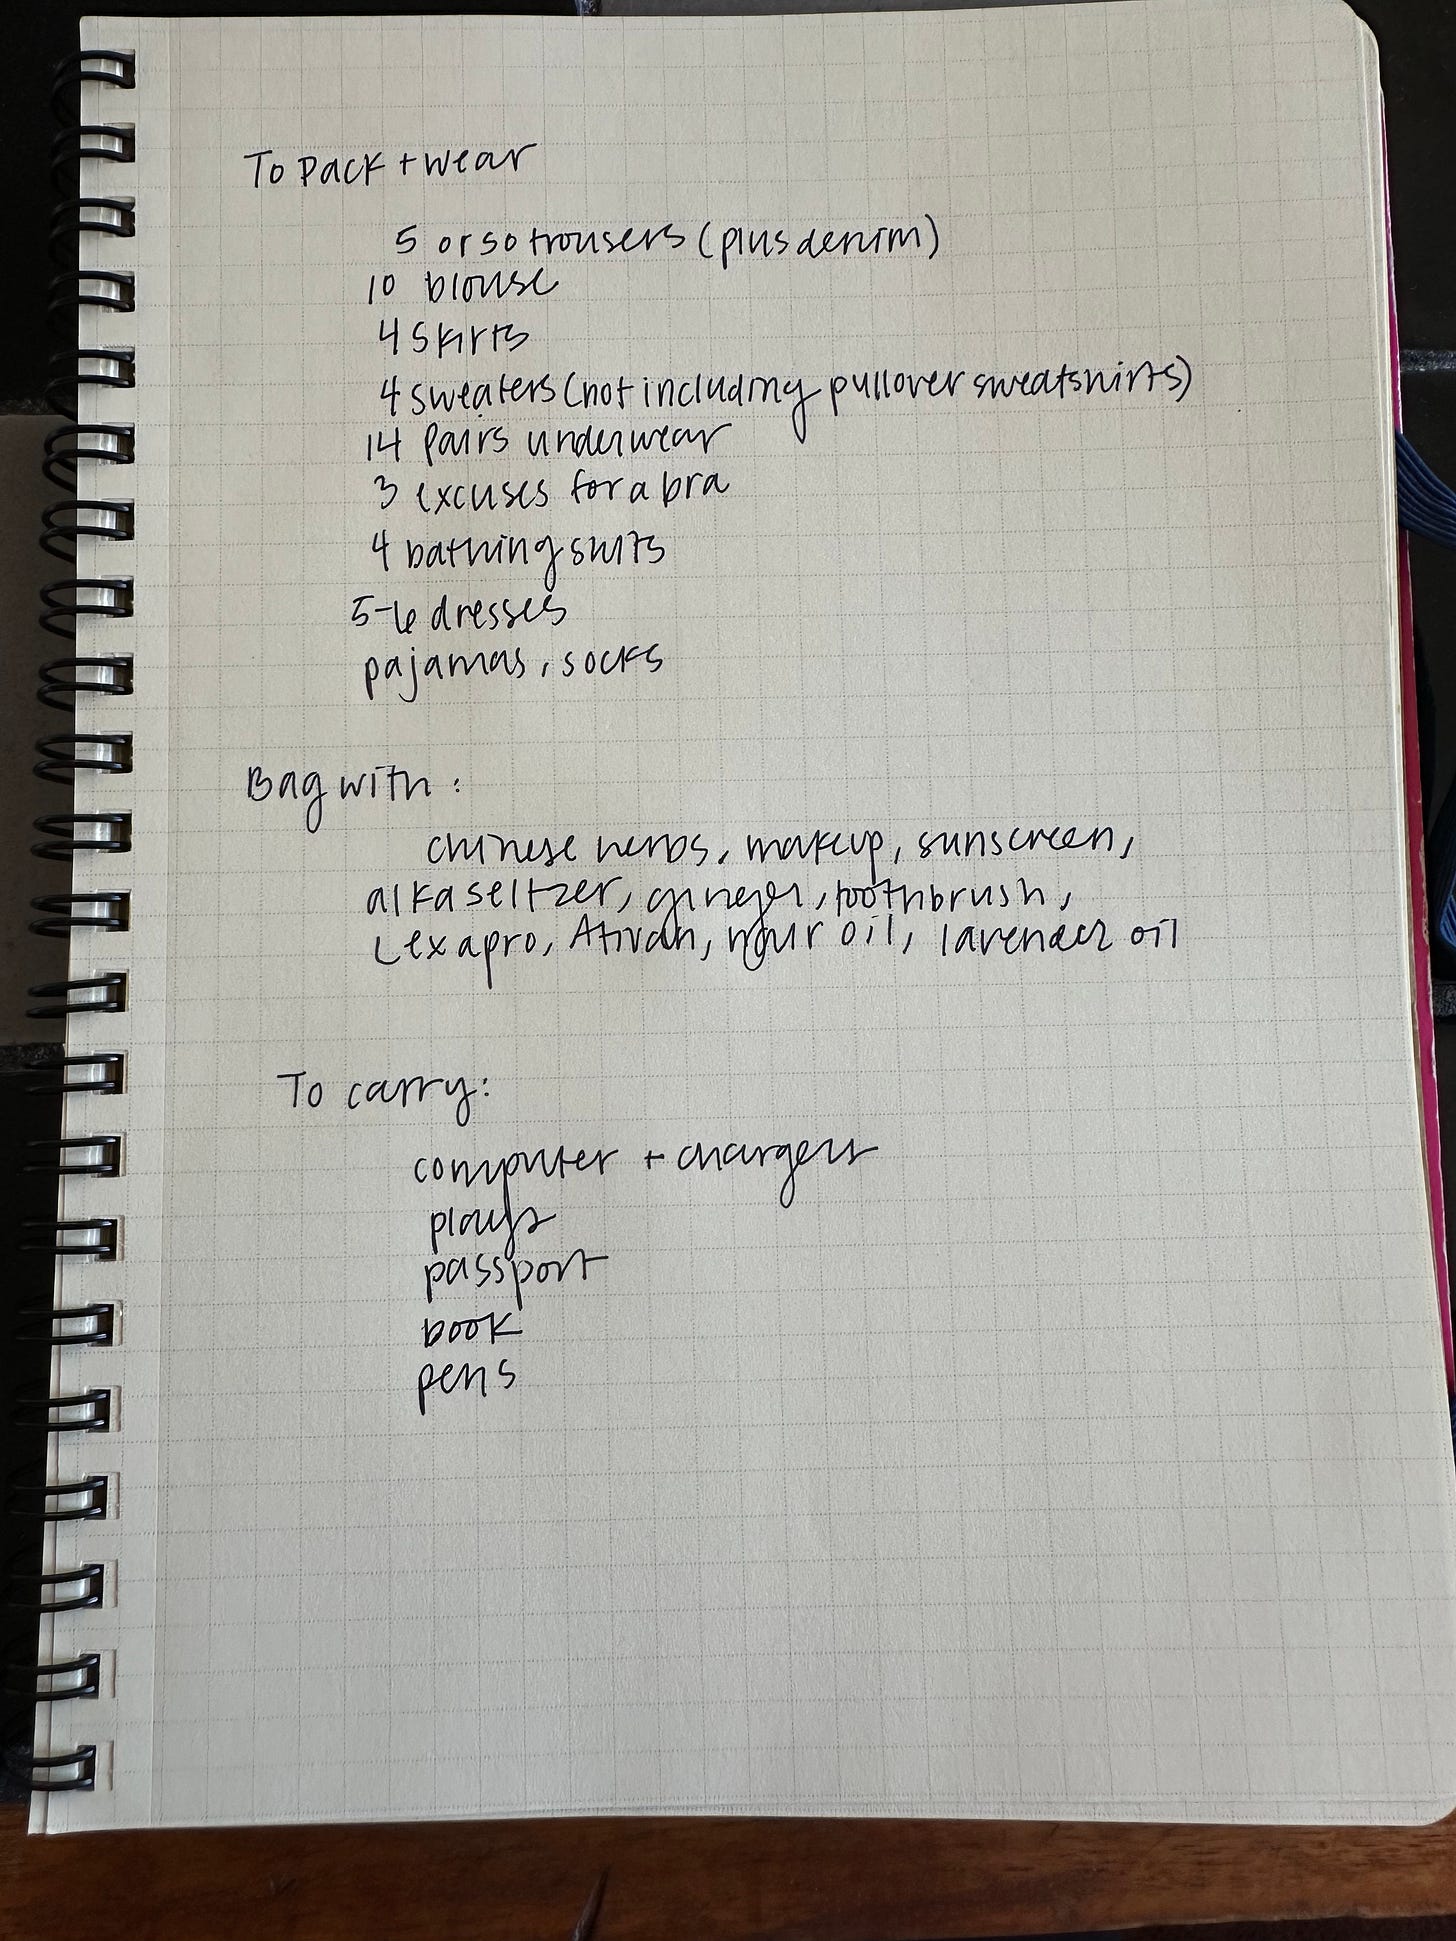 To pack + wear
5 or so trousers (plus denim)
10 blouse
4 skirts
4 sweaters (not including pullover sweatshirts)
14 pairs underwear
3 excuses for a bra
4 bathing suits
5-6 dresses
pajamas, socks
Bag with:
chinese herbs, makeup, sunscreen,
alka seltzer, ginger, toothbrush,
Lexapro, Ativan, hair oil, lavender oil
To carry:
computer + chargers
plays
passport
book
pens